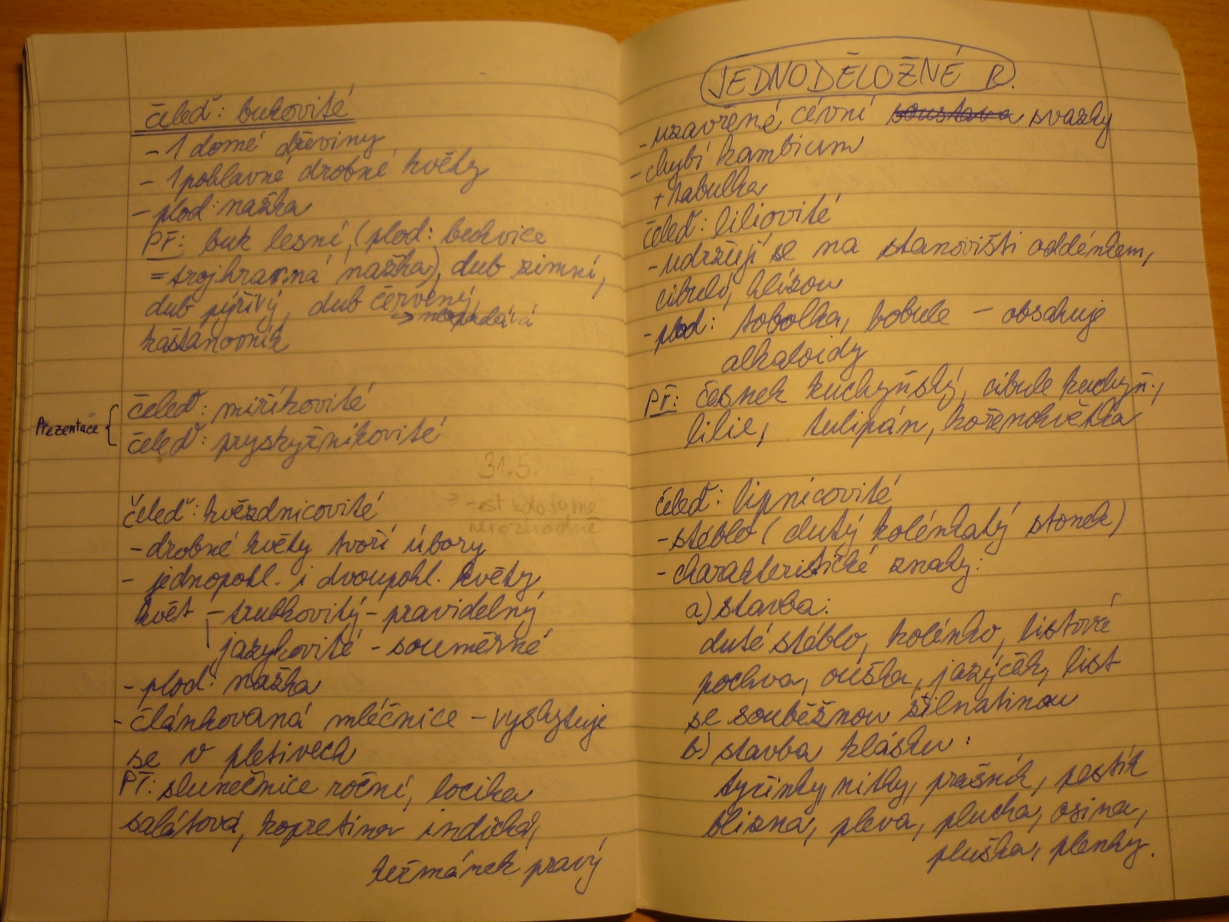 čeleď: bukovité
- 1 domé dřeviny
- 1 pohlavné drobné květy
- plod: nažka
Př: buk lesní, (plod: bukvice
= trojhranná nažka), dub zimní,
dub pýřivý, dub červený,
→ neopadává
kaštanovník
Prezentace {
čeleď: miříkovité
čeleď: pryskyřníkovité
31.5.
čeleď: hvězdnicovité
- drobné květy tvoří úbory
- jednopohl. i dvoupohl. květy
květ - trubkovitý - pravidelný
jazykovité - souměrné
- plod: nažka
- článkovaná mléčnice - vyskytuje
se v pletivech
Př: slunečnice roční, locika
salátová, kopretina indická,
heřmánek pravý
JEDNODĚLOŽNÉ R.
- uzavřené cévní soustava svazky
- chybí kambium
+ tabulka
čeleď: liliovité
- udržují se na stanovišti oddénkem,
cibulí, hlízou
- plod: tobolka, bobule - obsahuje
alkaloidy
Př: česnek kuchyňský, cibule kuchyň.,
lilie, tulipán, kořenokvětka
čeleď: lipnicovité
- stéblo (dutý kolénkatý stonek)
- charakteristické znaky:
a) stavba:
duté stéblo, kolénko, listová
pochva, ouška, jazýček, list
se souběžnou žilnatinou
b) stavba klásku:
tyčinky, nitky, prašník, pestík
blizna, pleva, plucha, osina,
pluška, plenky.